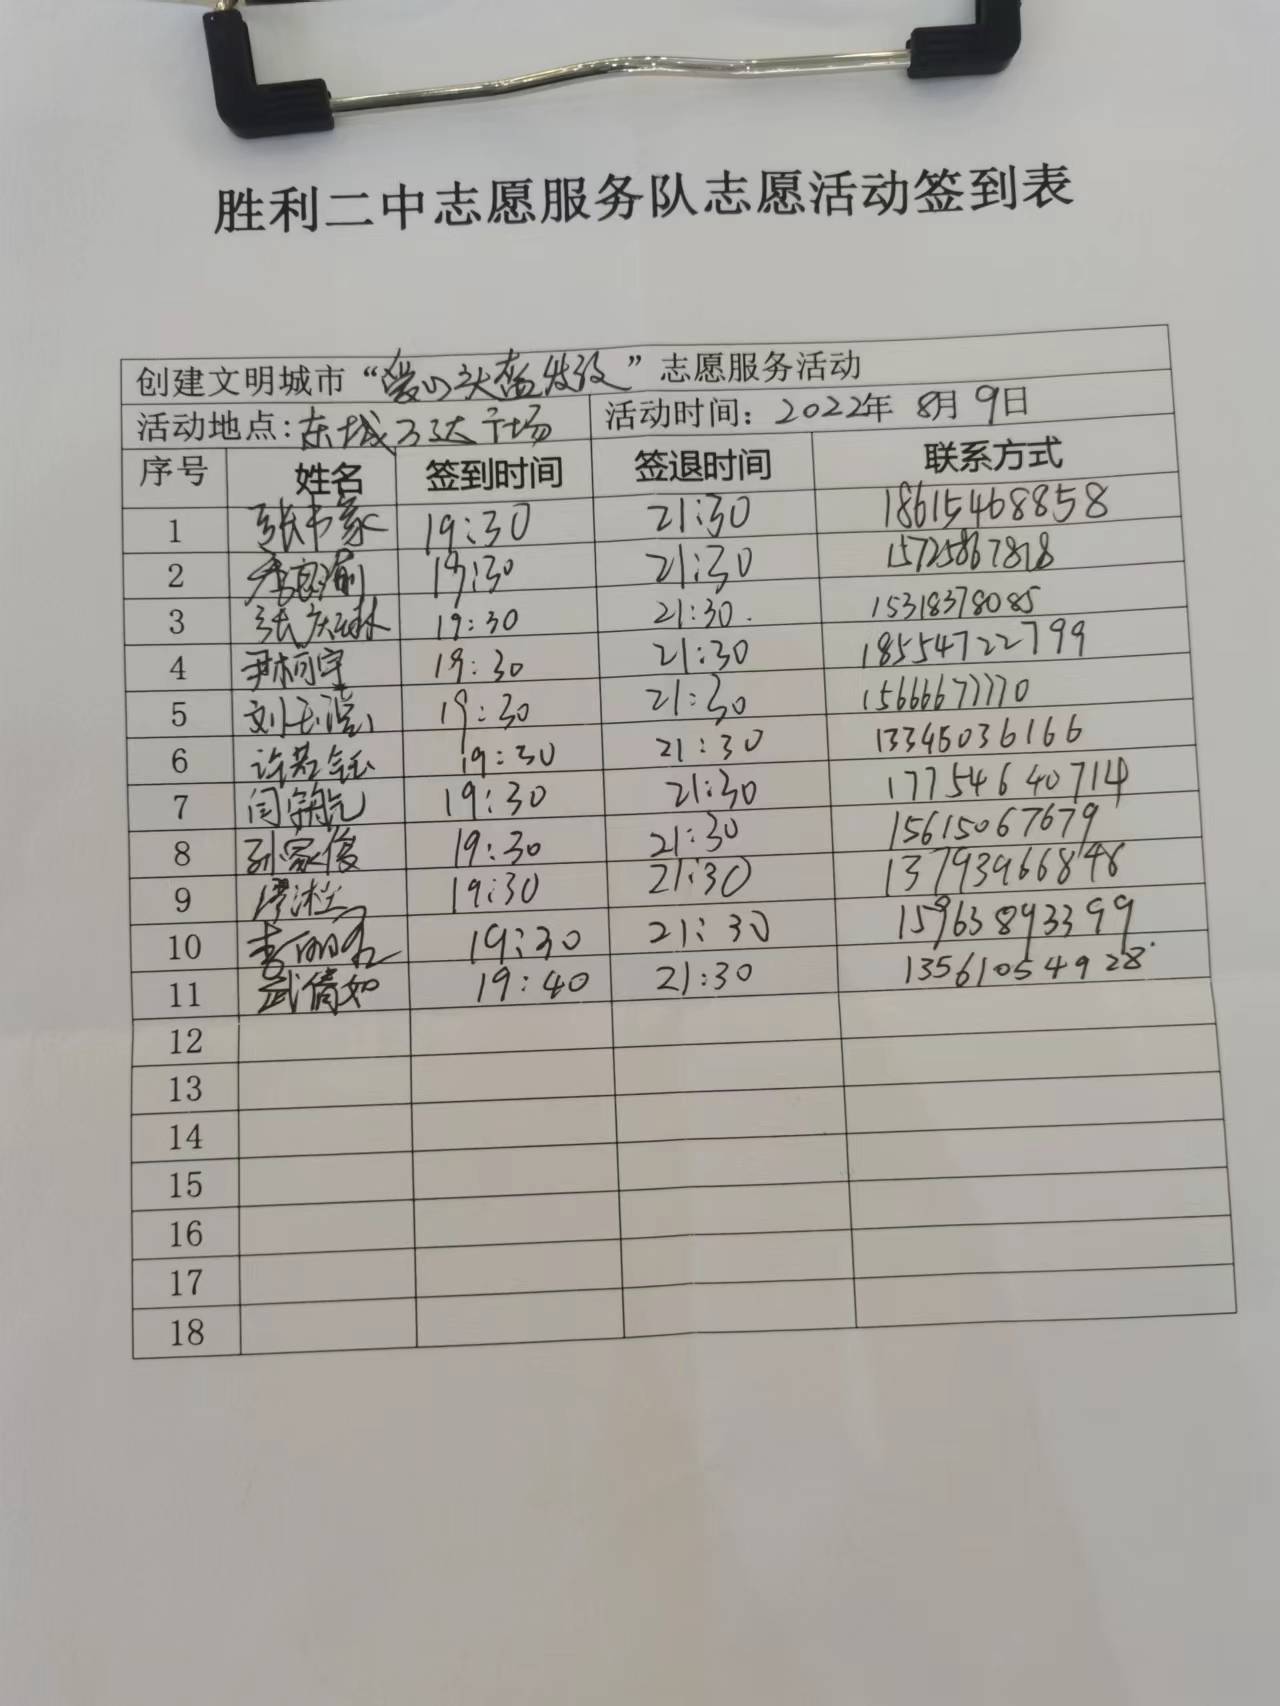 胜利二中志愿服务队志愿活动签到表
创建文明城市“爱心头盔发放”志愿服务活动
活动地点:东城万达广场 活动时间：2022年 8月 9日
序号 姓名 签到时间 签退时间 联系方式
1 张书豪 19:30 21:30 18615468858
2 19:30 21:30
3 张庆琳 19:30 21:30. 15318378085
4 尹柯宇 19:30 21:30 18554722799
5 刘玉 19:30 21:30 15666677770
6 许若钰 19:30 21:30 13345036166
7 闫 19:30 21:30 17754640714
8 孙家俊 19:30 21:30 15615067679
9 19:30 21:30 13793966848
10 19:30 21:30 15963893399
11 武倩如 19:40 21:30 13561054928
12
13
14
15
16
17
18